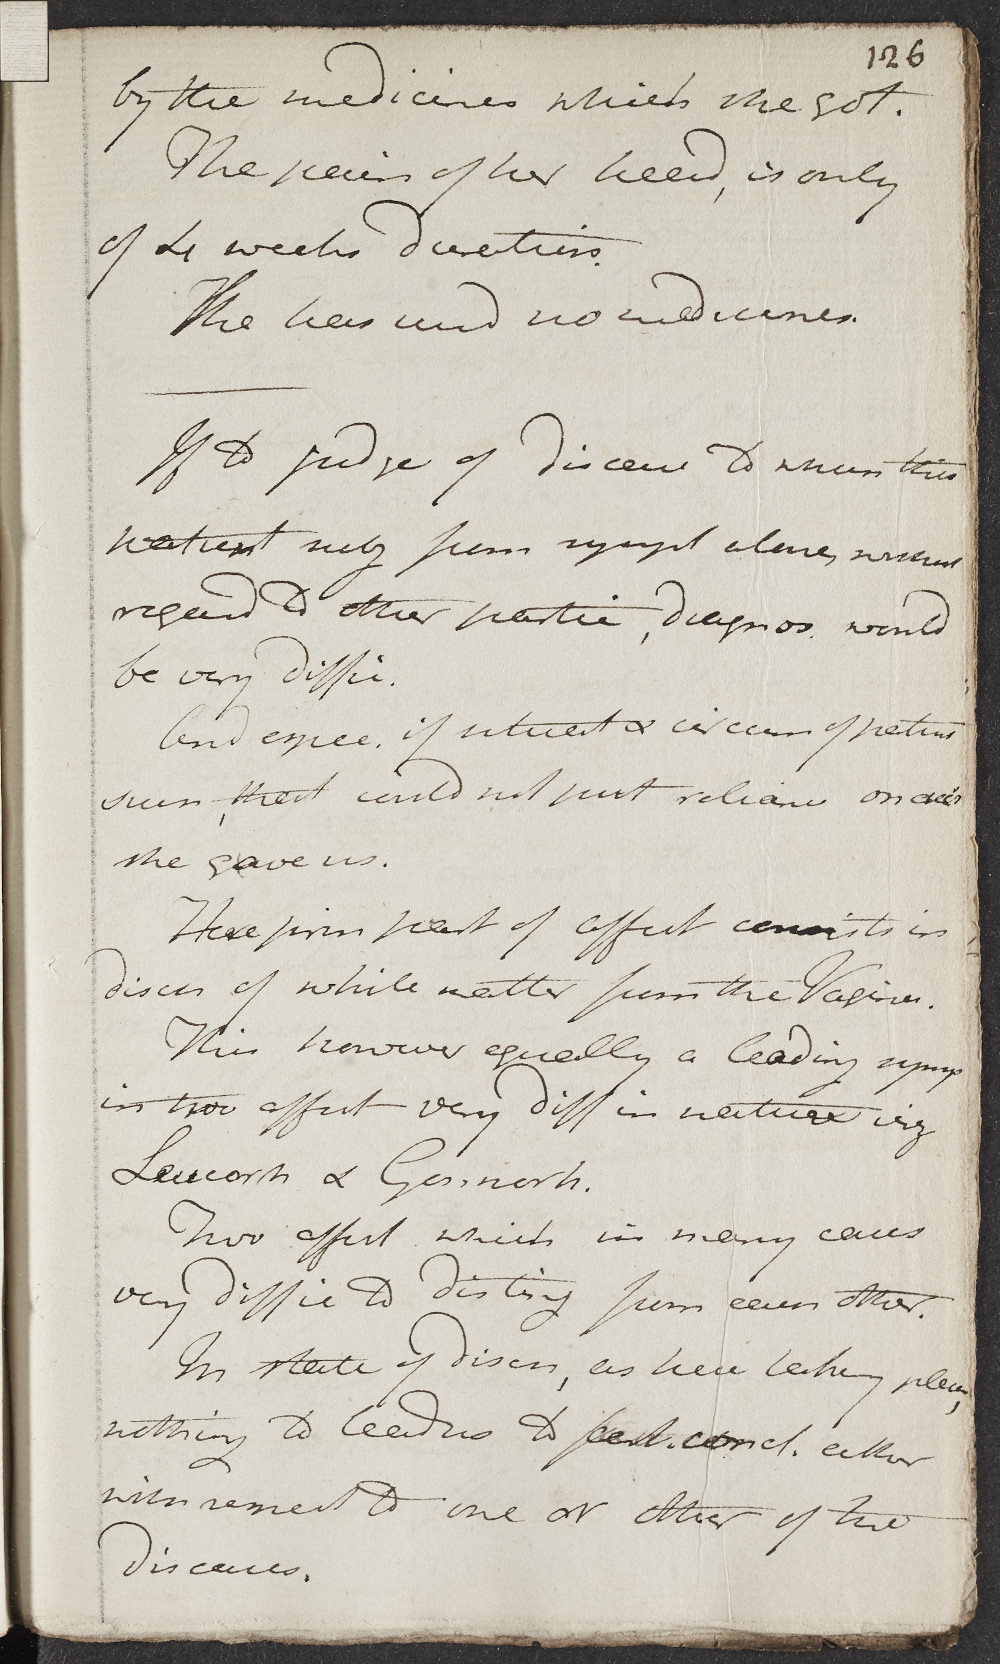 126
by the medicines which she got.
The pain of her head, is only
of 4 weeks duration.
She has used no medicines.
If to judge of disease to whch this
patient subj from sympt alone, without
regard to other partic, diagnos. would
be very diffic.
And espec. if situat & circum of patient
such, that could not put reliance on acct
she gave us.
Here prin part of affect consists in
disch of white matter from the Vagina.
This however equally a leading symp
in two affect very diff in nature viz
Leucorh & Gonnorh.
Two affect which in many cases
very diffic to disting from each other.
In state of disch, as here taking place,
nothing to lead us to part. concl. either
with respect to one or other of the
diseases.